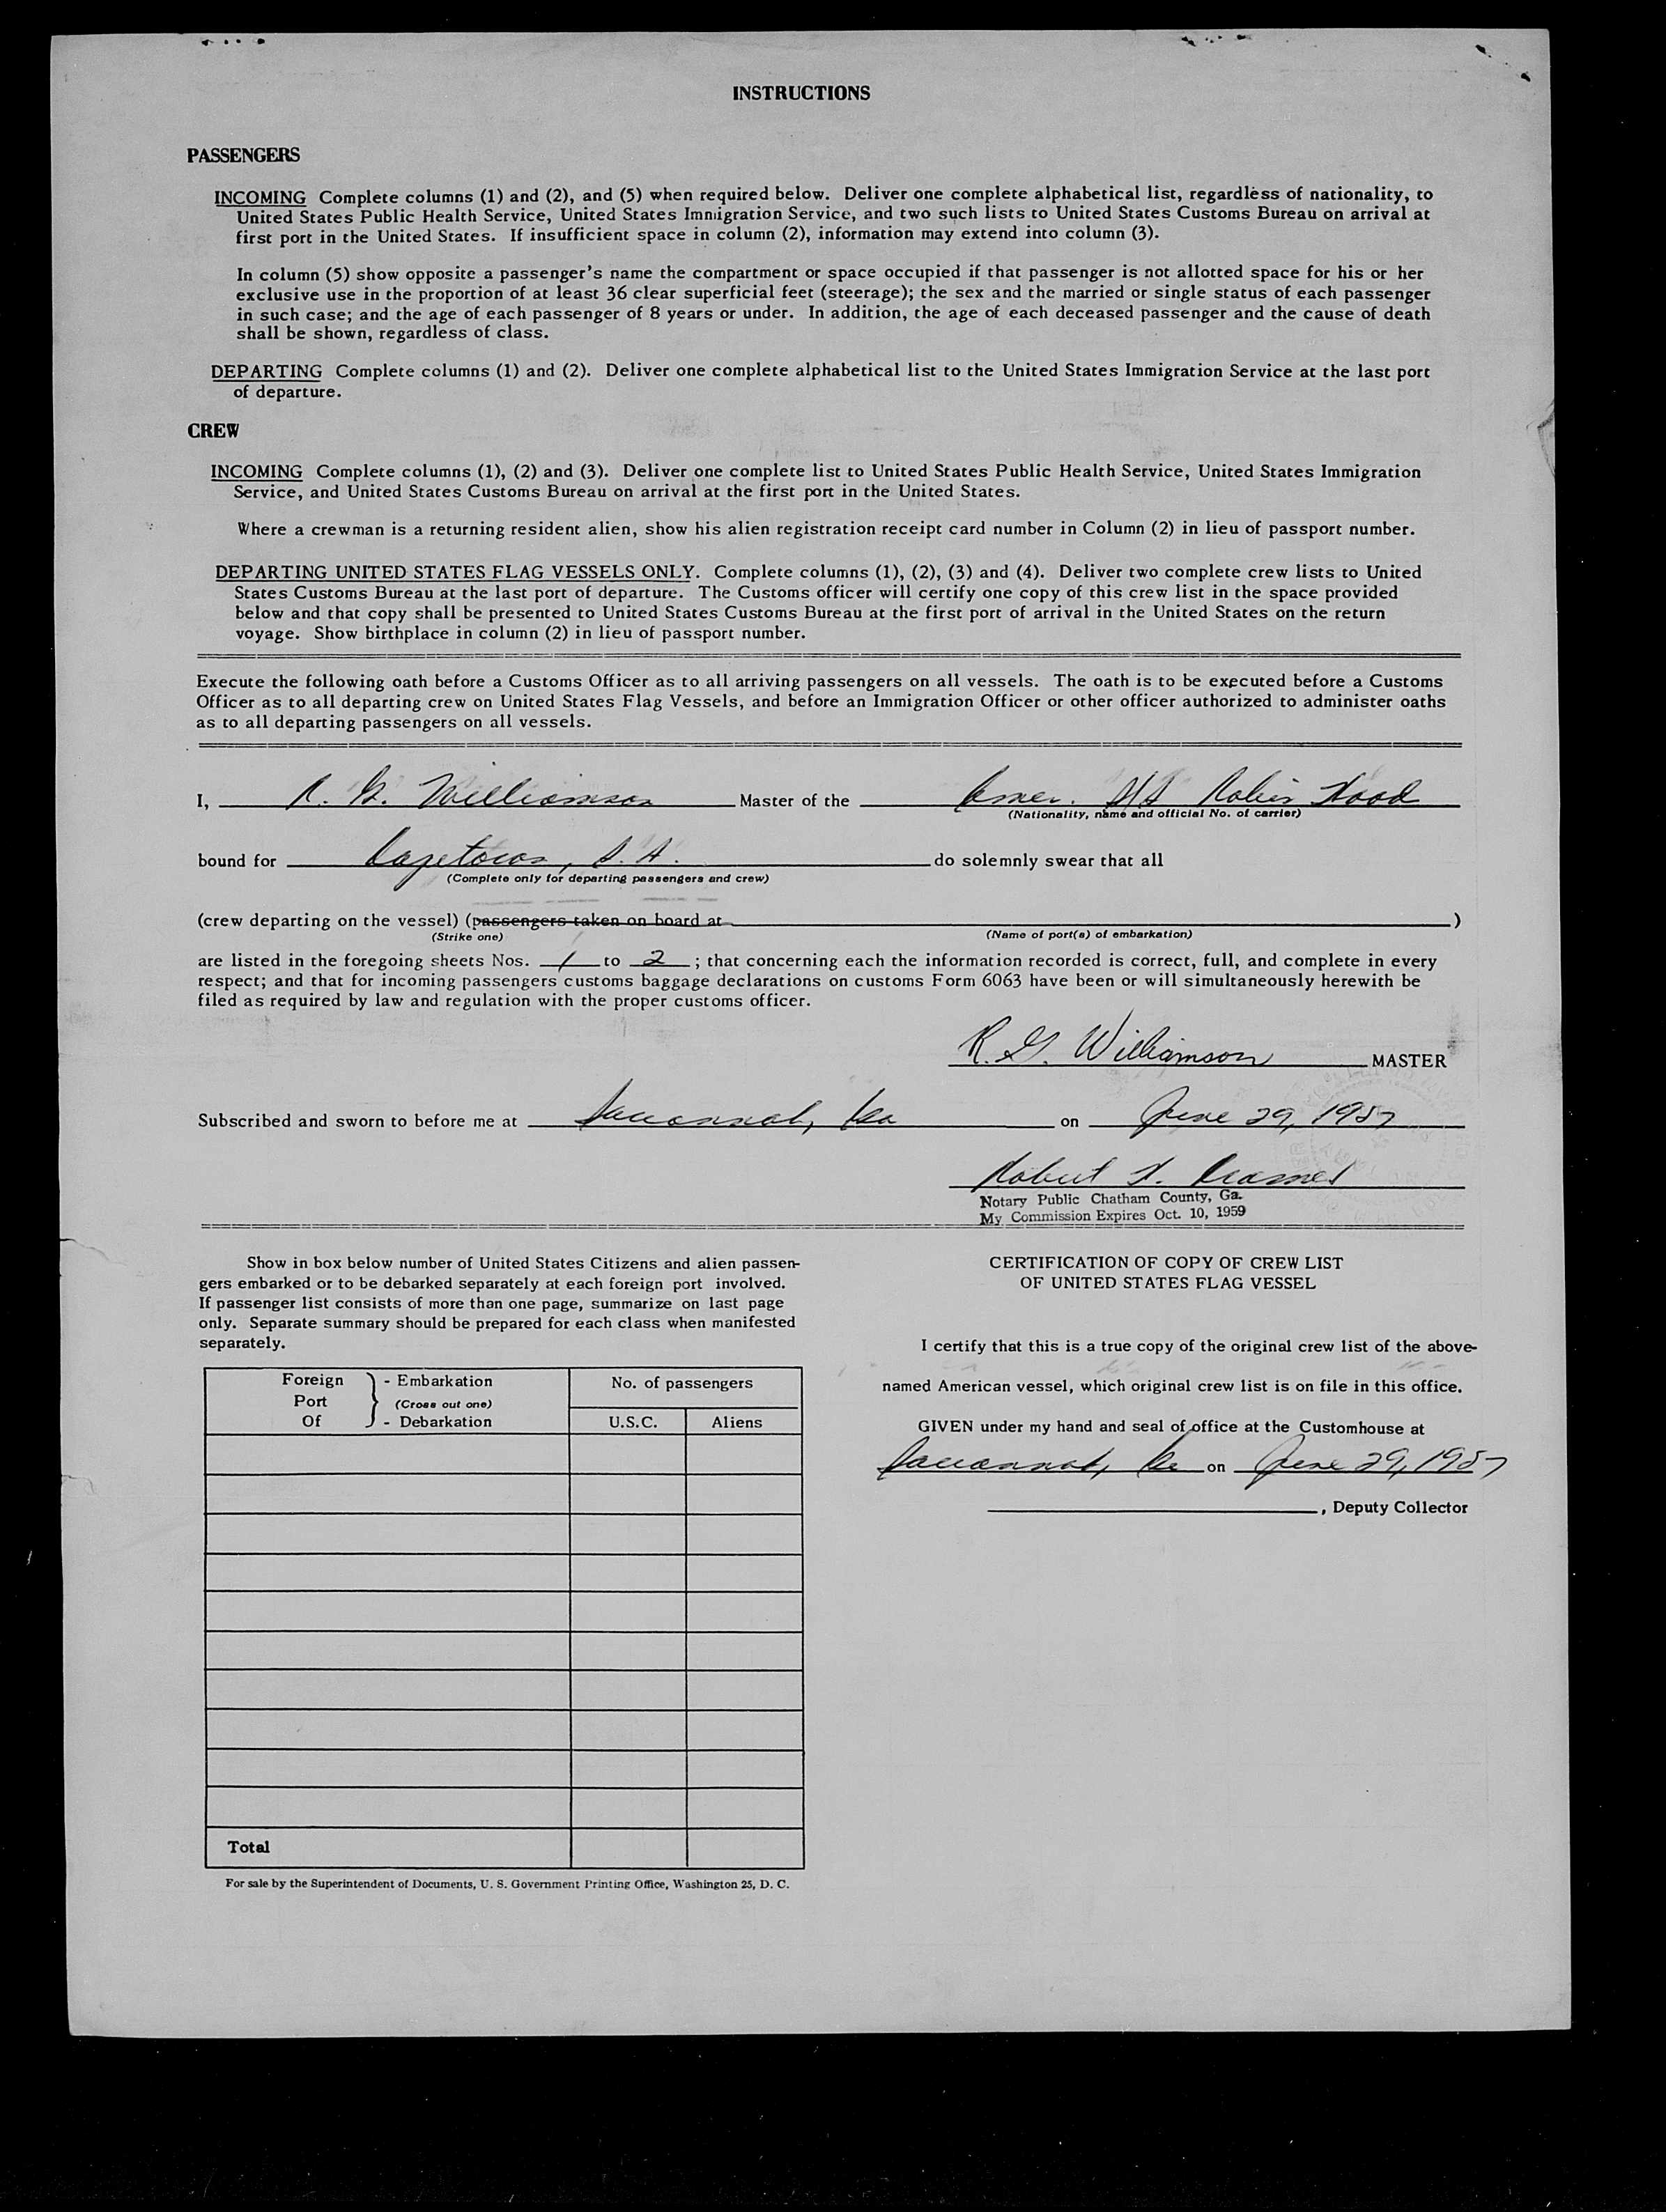 INSTRUCTIONS
PASSENGERS
INCOMING Complete columns (1) and (2), and (5) when required below. Deliver one complete alphabetical list, regardless of nationality, to
United States Public Health Service, United States Immigration Service, and two such lists to United States Customs Bureau on arrival at
first port in the United States. If insufficient space in column (2), information may extend into column (3).
In column (5) show opposite a passenger's name the compartment or space occupied if that passenger is not allotted space for his or her
exclusive use in the proportion of at least 36 clear superficial feet (steerage); the sex and the married or single status of each passenger
in such case; and the age of each passenger of 8 years or under. In addition, the age of each deceased passenger and the cause of death
shall be shown, regardless of class.
DEPARTING Complete columns (1) and (2). Deliver one complete alphabetical list to the United States Immigration Service at the last port
of departure.
CREW
INCOMING Complete columns (1), (2) and (3). Deliver one complete list to United States Public Health Service, United States Immigration
Service, and United States Customs Bureau on arrival at the first port in the United States.
Where a crewman is a returning resident alien, show his alien registration receipt card number in Column (2) in lieu of passport number.
DEPARTING UNITED STATES FLAG VESSELS ONLY. Complete columns (1), (2), (3) and (4). Deliver two complete crew lists to United
States Customs Bureau at the last port of departure. The Customs officer will certify one copy of this crew list in the space provided
below and that copy shall be presented to United States Customs Bureau at the first port of arrival in the United States on the return
voyage. Show birthplace in column (2) in lieu of passport number.
Execute the following oath before a Customs Officer as to all arriving passengers on all vessels. The oath is to be executed before a Customs
Officer as to all departing crew on United States Flag Vessels, and before an Immigration Officer or other officer authorized to administer oaths
as to all departing passengers on all vessels.
I, R. G. Williamson Master of the Amer. S/S Robin Hood
(Nationality, name and official No. of carrier)
bound for Capetown, S. A. do solemnly swear that all
(Complete only for departing passengers and crew)
(crew departing on the vessel) (passengers taken on board at )
(Strike one) (Name of port(s) of embarkation)
are listed in the foregoing sheets Nos. 1 to 2 ; that concerning each the information recorded is correct, full, and complete in every
respect; and that for incoming passengers customs baggage declarations on customs Form 6063 have been or will simultaneously herewith be
filed as required by law and regulation with the proper customs officer.
R. G. Williamson MASTER
Subscribed and sworn to before me at Savannah, Ga on June 29, 1957
Robert
Notary Public Chatham County, Ga.
My Commission Expires Oct. 10, 1959
Show in box below number of United States Citizens and alien passen-
gers embarked or to be debarked separately at each foreign port involved.
If passenger list consists of more than one page, summarize on last page
only. Separate summary should be prepared for each class when manifested
separately.
Foreign Port Of } - Embarkation (Cross out one) - Debarkation
No. of passengers
U.S.C. Aliens
Total
For sale by the Superintendent of Documents, U. S. Government Printing Office, Washington 25, D. C.
CERTIFICATION OF COPY OF CREW LIST
OF UNITED STATES FLAG VESSEL
I certify that this is a true copy of the original crew list of the above-
named American vessel, which original crew list is on file in this office.
GIVEN under my hand and seal of office at the Customhouse at
Savannah, Ga on June 29, 1957
, Deputy Collector